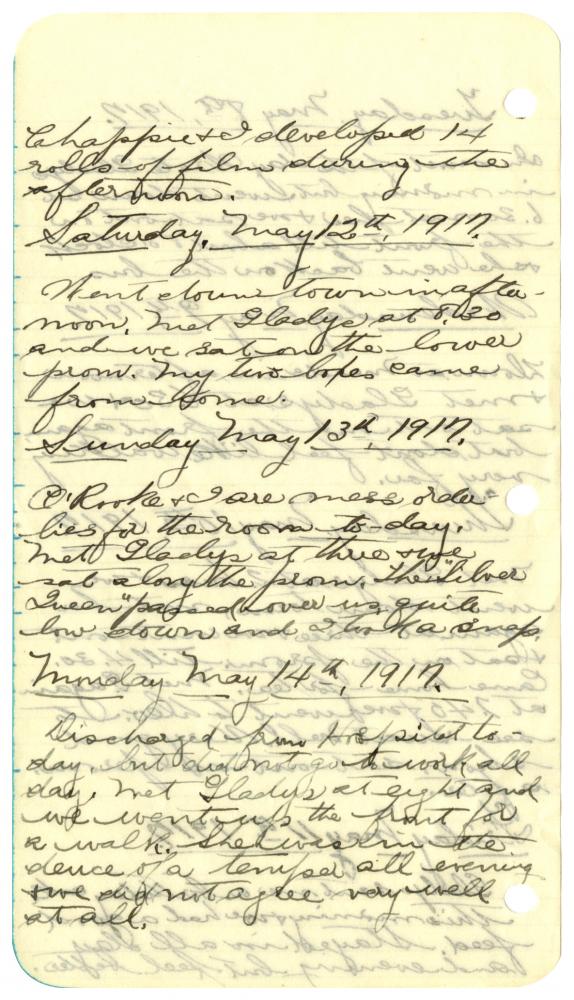 Chappie & I developed 14
rolls of film during the
afternoon.
Saturday, May 12th, 1917.
Went down town in after-
noon. Met Gladys at 8.30
and we sat on the lower
prom. My two boxes came
from home.
Sunday May 13th, 1917.
O'Rooke & I are mess order-
lies for the room to-day.
Met Gladys at three & we
sat along the prom. The "Silver
Queen" passed over us quite
low down and I took a snap.
Monday May 14th, 1917.
Discharged from Hospital to-
day, but did not go to work all
day. Met Gladys at eight and
we went up the front for
a walk. She was in the
deuce of a temper all evening
& we did not agree very well
at all.